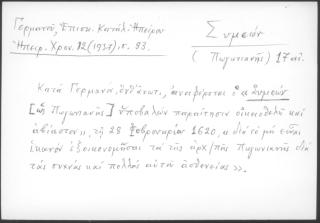 Γερμανοῦ, Ἐπισκ. Κατάλ. Ἠπείρου
Ἠπειρ. Χρον. 12 (1937), σ. 93.
Συμεών
(Πωγωνιανῆς) 17 αἰ.
Κατὰ Γερμανό, ἀναφέρεται ὁ α Συμεών
[ὁ Πωγωνιανῆς] ὑποβαλὼν παραίτησιν οἰκειοθελῆ καὶ
ἀβίαστον», τῇ 28 Φεβρουαρίου 1620, « διὰ τὸ μὴ εἶναι
ἱκανὸν ἐξοικονομῆσαι τὰ τῆς ἀρχ/πῆς Πωγωνιανῆς διὰ
τὰς συχνὰς καὶ πολλὰς αὐτοῦ ἀσθενείας».